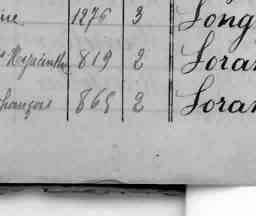 ine 1276 3 Long
Hyacinth 819 2 Loran
François 865 2 Loran